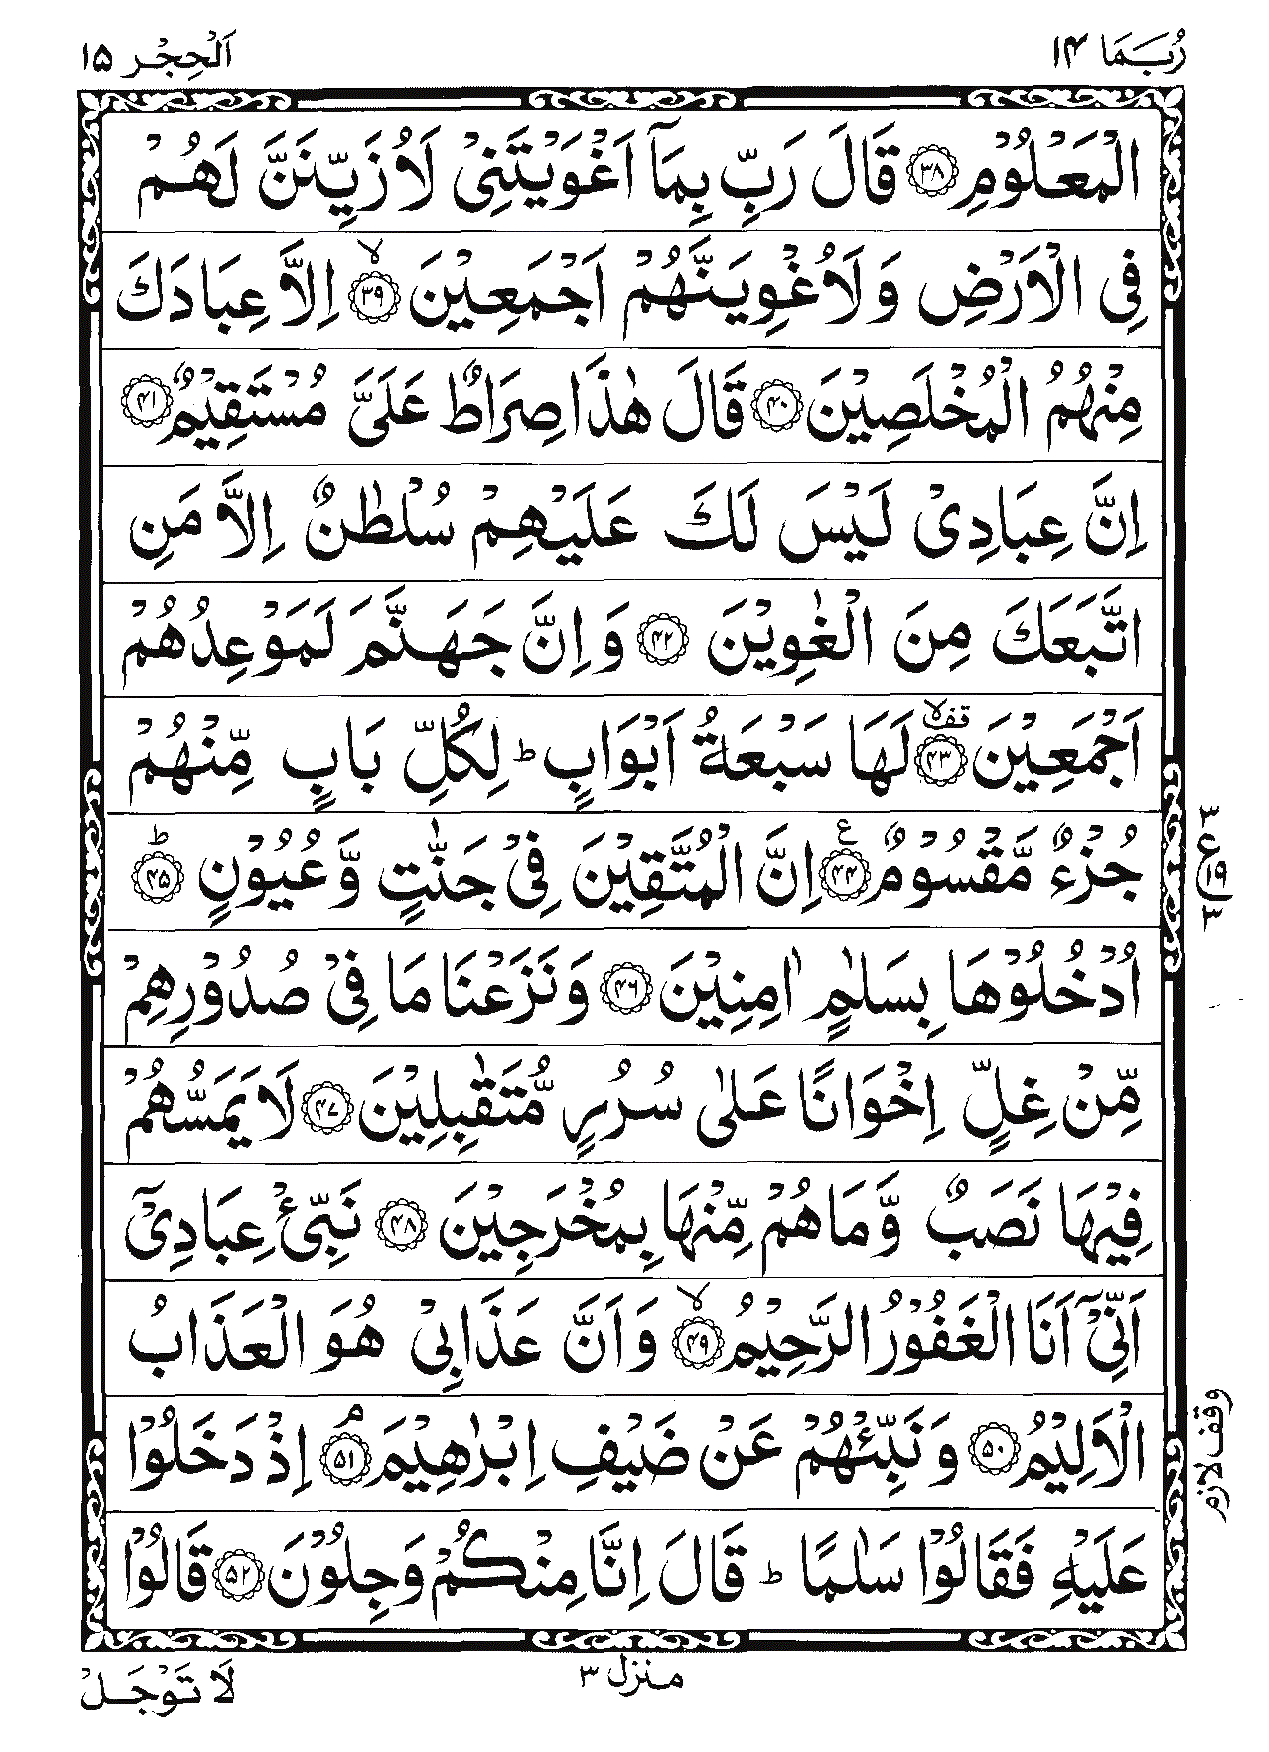 رُبَمَا ۱۴
اَلْحِجْر ۱۵
الْمَعْلُوْمِ ﴿۳۸﴾ قَالَ رَبِّ بِمَاۤ اَغْوَيْتَنِيْ لَاُزَيِّنَنَّ لَهُمْ
فِي الْاَرْضِ وَلَاُغْوِيَنَّهُمْ اَجْمَعِيْنَ ﴿۳۹﴾ۙ اِلَّا عِبَادَكَ
مِنْهُمُ الْمُخْلَصِيْنَ ﴿۴۰﴾ قَالَ هٰذَا صِرَاطٌ عَلَيَّ مُسْتَقِيْمٌ ﴿۴۱﴾
اِنَّ عِبَادِيْ لَيْسَ لَكَ عَلَيْهِمْ سُلْطٰنٌ اِلَّا مَنِ
اتَّبَعَكَ مِنَ الْغٰوِيْنَ ﴿۴۲﴾ وَاِنَّ جَهَنَّمَ لَمَوْعِدُهُمْ
اَجْمَعِيْنَ ﴿۴۳﴾ قف لا لَهَا سَبْعَةُ اَبْوَابٍ ؕ لِكُلِّ بَابٍ مِّنْهُمْ
جُزْءٌ مَّقْسُوْمٌ ﴿۴۴﴾ ع اِنَّ الْمُتَّقِيْنَ فِيْ جَنّٰتٍ وَّعُيُوْنٍ ﴿۴۵﴾ؕ
۳ ع ۱۹ ۳
اُدْخُلُوْهَا بِسَلٰمٍ اٰمِنِيْنَ ﴿۴۶﴾ وَنَزَعْنَا مَا فِيْ صُدُوْرِهِمْ
مِّنْ غِلٍّ اِخْوَانًا عَلٰى سُرُرٍ مُّتَقٰبِلِيْنَ ﴿۴۷﴾ لَا يَمَسُّهُمْ
فِيْهَا نَصَبٌ وَّمَا هُمْ مِّنْهَا بِمُخْرَجِيْنَ ﴿۴۸﴾ نَبِّئْ عِبَادِيْۤ
اَنِّيْۤ اَنَا الْغَفُوْرُ الرَّحِيْمُ ﴿۴۹﴾ۙ وَاَنَّ عَذَابِيْ هُوَ الْعَذَابُ
الْاَلِيْمُ ﴿۵۰﴾ وَنَبِّئْهُمْ عَنْ ضَيْفِ اِبْرٰهِيْمَ ﴿۵۱﴾ۘ اِذْ دَخَلُوْا
وقف لازم
عَلَيْهِ فَقَالُوْا سَلٰمًا ؕ قَالَ اِنَّا مِنْكُمْ وَجِلُوْنَ ﴿۵۲﴾ قَالُوْا
منزل ۳
لَا تَوْجَلْ